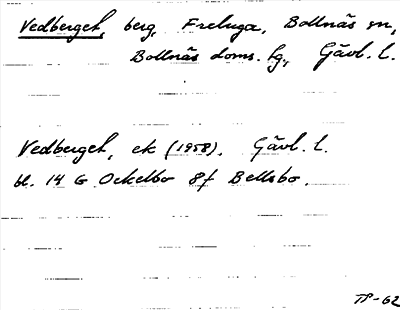 Vedberget, berg, Freluga, Bollnäs sn,
Bollnäs doms. lg., Gävl. l.
Vedberget, ek (1958). Gävl. l.
bl. 14 G Ockelbo 8f Bellsbo.
TP-62